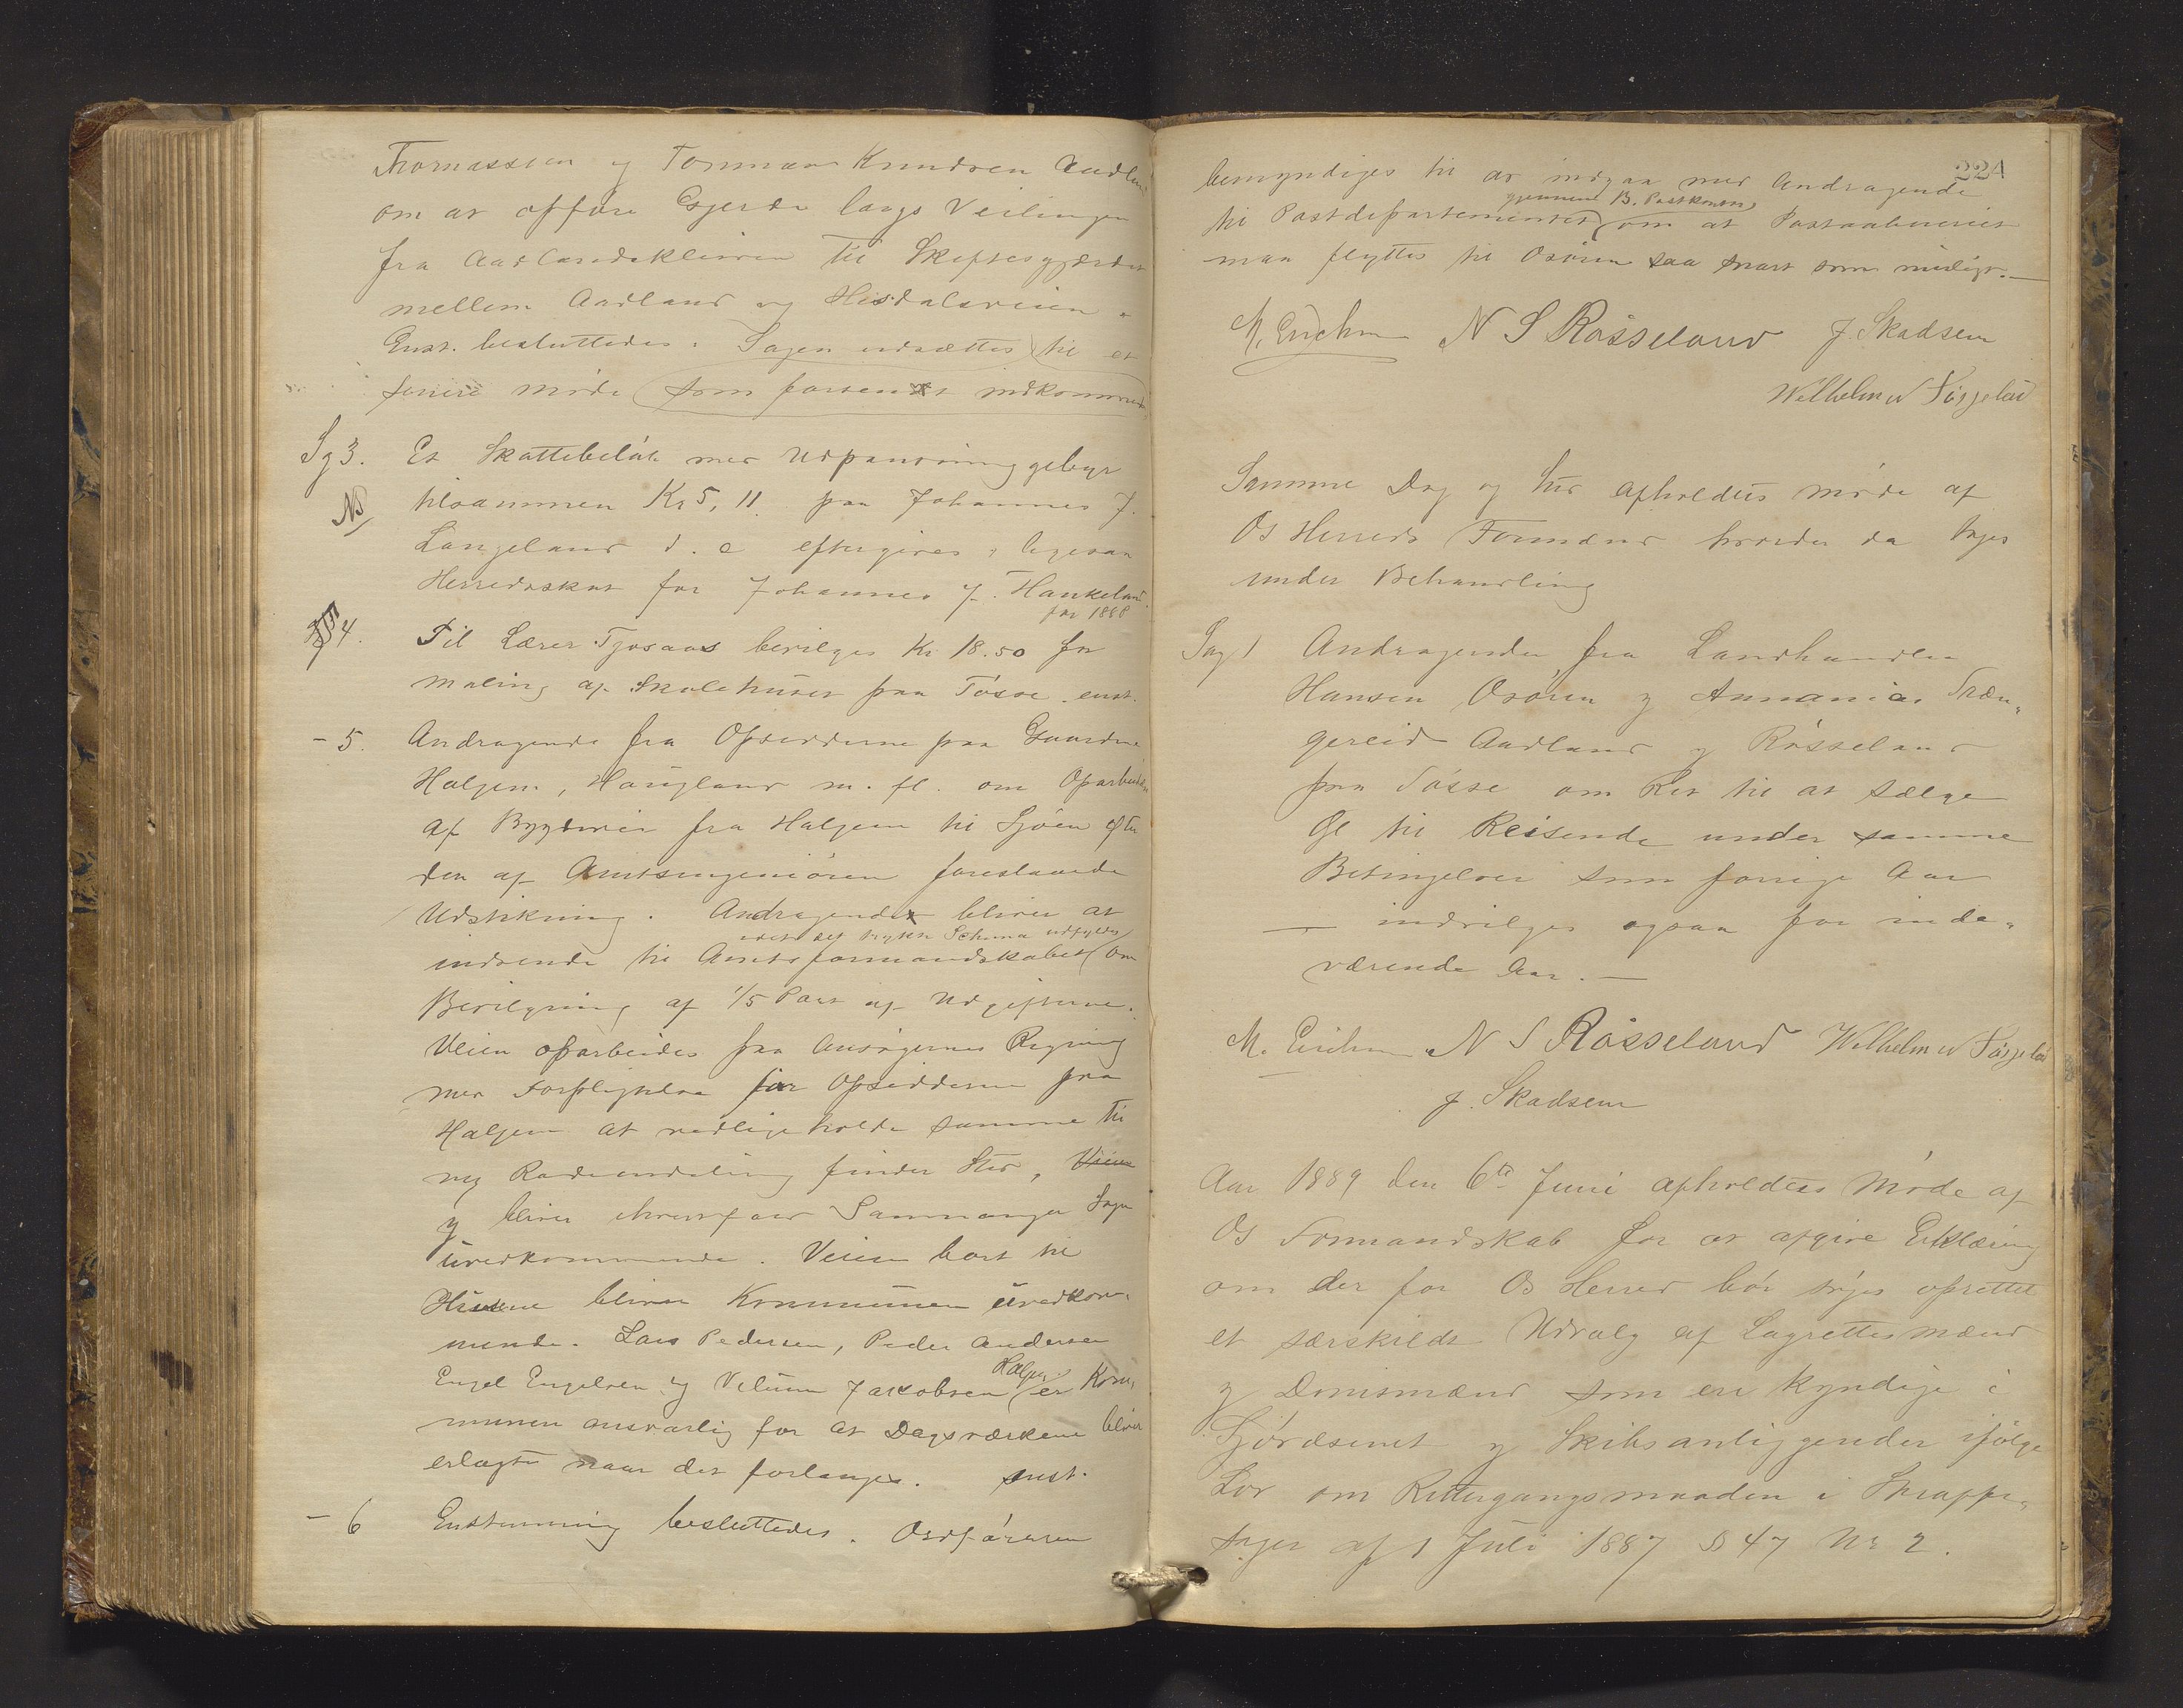 Thomassen og Tormann Knudsen Aadland
om at opføre Gjerde langs Veilinjen
fra Aadlandskleiven til Skiftesgjærdet
mellem Aadland og Hisdalsveien.
Enst. besluttedes: Sagen udsættes til et
senere møde som forsent indkommende
Sg 3. Et Skattebeløb med Udpantninggebyr
NB tilsammen Kr 5,11 paa Johannes J.
Langeland d. e eftergives, ligesaa
Herredsskat for Johannes J. Haukeland
for 1888
4. Til Lærer Tjosaas bevilges Kr 18.50 for
maling af Skolehuset paa Tøsse enst.
- 5. Andragende fra Opsidderne paa Gaardene
Haljem, Haugland m. fl. om Oparbeidelse
af Bygdevei fra Haljem til Sjøen efter
den af Amtsingeniøren foreslaaede
Udstikning. Andragendet bliver at
udi det trykte Schema udfyldes
indsende til Amtsformandskabet om
Bevilgning af 1/5 Part af Udgifterne.
Veien oparbeides paa Ansøgernes Regning
med Forpligtelse for Opsidderne paa
Haljem at vedligeholde samme til
ny Rodeinddeling finder Sted, Veien
og bliver Samnanger Sogn
uvedkommende. Veien bort til
Husene bliver Kommunen uvedkom-
mende. Lars Pedersen, Peder Andersen
Engel Engelsen og Villum Jakobsen Haljem er Kom-
munen ansvarlig for at Dagsværkene bliver
erlagte naar det forlanges. enst.
- 6 Enstemmig besluttedes. Ordføreren
224
bemyndiges til at indgaa med Andragende
gjennem B. Postkontor
til Postdepartementet om at Postaabneriet
maa flyttes til Osøren saa snart som muligt.
M. Erichsen N S Røsseland J. Skadsem
Wilhelm W Søfteland
Samme Dag og Sted afholdtes møde af
Os Herreds Formænd hvorder da toges
under Behandling
Sag 1 Andragender fra Landhandler
Hansen Osøren og Annanias Træn-
gereid Aadland og Røsseland
paa Tøsse om Ret til at sælge
Øl til Reisende under samme
Betingelser som forrige Aar
— indvilges ogsaa for inde-
værende Aar. —
M. Erichsen N S Røsseland Wilhelm W Søfteland
J. Skadsem
Aar 1889 den 6te Juni afholdtes Møde af
Os Formandskab for at afgive Erklæring
om der for Os Herred bør søges oprettet
et særskildt Udvalg af Lagrettesmænd
og Domsmænd som ere kyndige i
Sjøvæsenet og Skibsanliggender ifølge
Lov om Rettergangsmaaden i Straffe-
sager af 1 Juli 1887 § 47 Nr 2.